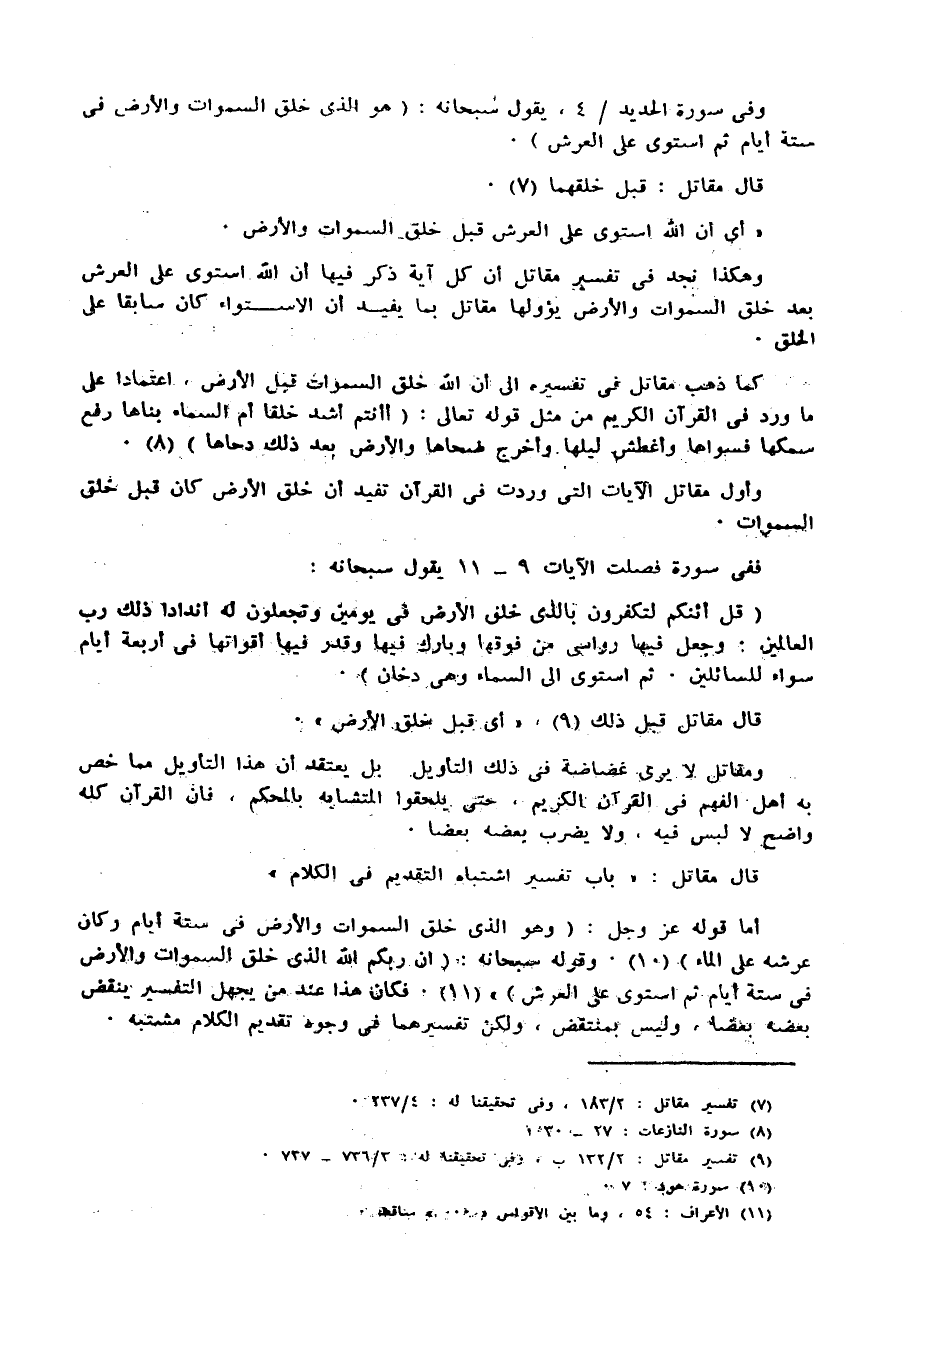 وفى سورة الحديد / ٤ ، يقول سُبحانه : ( هو الذى خلق السموات والأرض فى
ستة أيام ثم استوى على العرش ) ٠
قال مقاتل : قبل خلقهما (٧) ٠
« أي أن الله استوى على العرش قبل خلق السموات والأرض ٠
وهكذا نجد فى تفسير مقاتل أن كل آية ذكر فيها أن الله استوى على العرش
بعد خلق السموات والأرض يؤولها مقاتل بما يفيد أن الاستواء كان سابقا على
الخلق ٠
كما ذهب مقاتل فى تفسيره الى أن الله خلق السموات قبل الأرض ، اعتمادا على
ما ورد فى القرآن الكريم من مثل قوله تعالى : ( أأنتم أشد خلقا أم السماء بناها رفع
سمكها فسواها وأغطش ليلها وأخرج ضحاها والأرض بعد ذلك دحاها ) (٨) ٠
وأول مقاتل الآيات التى وردت فى القرآن تفيد أن خلق الأرض كان قبل خلق
السموات ٠
ففى سورة فصلت الآيات ٩ ــ ١١ يقول سبحانه :
( قل أئنكم لتكفرون بالذى خلق الأرض فى يومين وتجعلون له أندادا ذلك رب
العالمين : وجعل فيها رواسى من فوقها وبارك فيها وقدر فيها أقواتها فى أربعة أيام
سواء للسائلين ٠ ثم استوى الى السماء وهى دخان ) ٠
قال مقاتل قبل ذلك (٩) ، « أى قبل خلق الأرض » ٠
ومقاتل لا يرى غضاضة فى ذلك التأويل بل يعتقد أن هذا التأويل مما خص
به أهل الفهم فى القرآن الكريم ، حتى يلحقوا المتشابه بالمحكم ، فان القرآن كله
واضح لا لبس فيه ، ولا يضرب بعضه بعضا ٠
قال مقاتل : « باب تفسير اشتباه التقديم فى الكلام »
أما قوله عز وجل : ( وهو الذى خلق السموات والأرض فى ستة أيام وكان
عرشه على الماء ) (١٠) ٠ وقوله سبحانه : ( ان ربكم الله الذى خلق السموات والأرض
فى ستة أيام ثم استوى على العرش ) » (١١) ٠ فكان هذا عند من يجهل التفسير ينقض
بعضه بعضا ، وليس بمنتقض ، ولكن تفسيرهما فى وجوه تقديم الكلام مشتبه ٠
(٧) تفسير مقاتل : ١٨٣/٢ ، وفى تحقيقنا له : ٢٣٧/٤ ٠
(٨) سورة النازعات : ٢٧ ــ ٣٠
(٩) تفسير مقاتل : ١٣٢/٢ ب ، وفى تحقيقنا له : ٧٣٦/٣ ــ ٧٣٧ ٠
(١٠) سورة هود : ٧ ٠
(١١) الأعراف : ٥٤ ، وما بين الأقواس « ٠٠ »